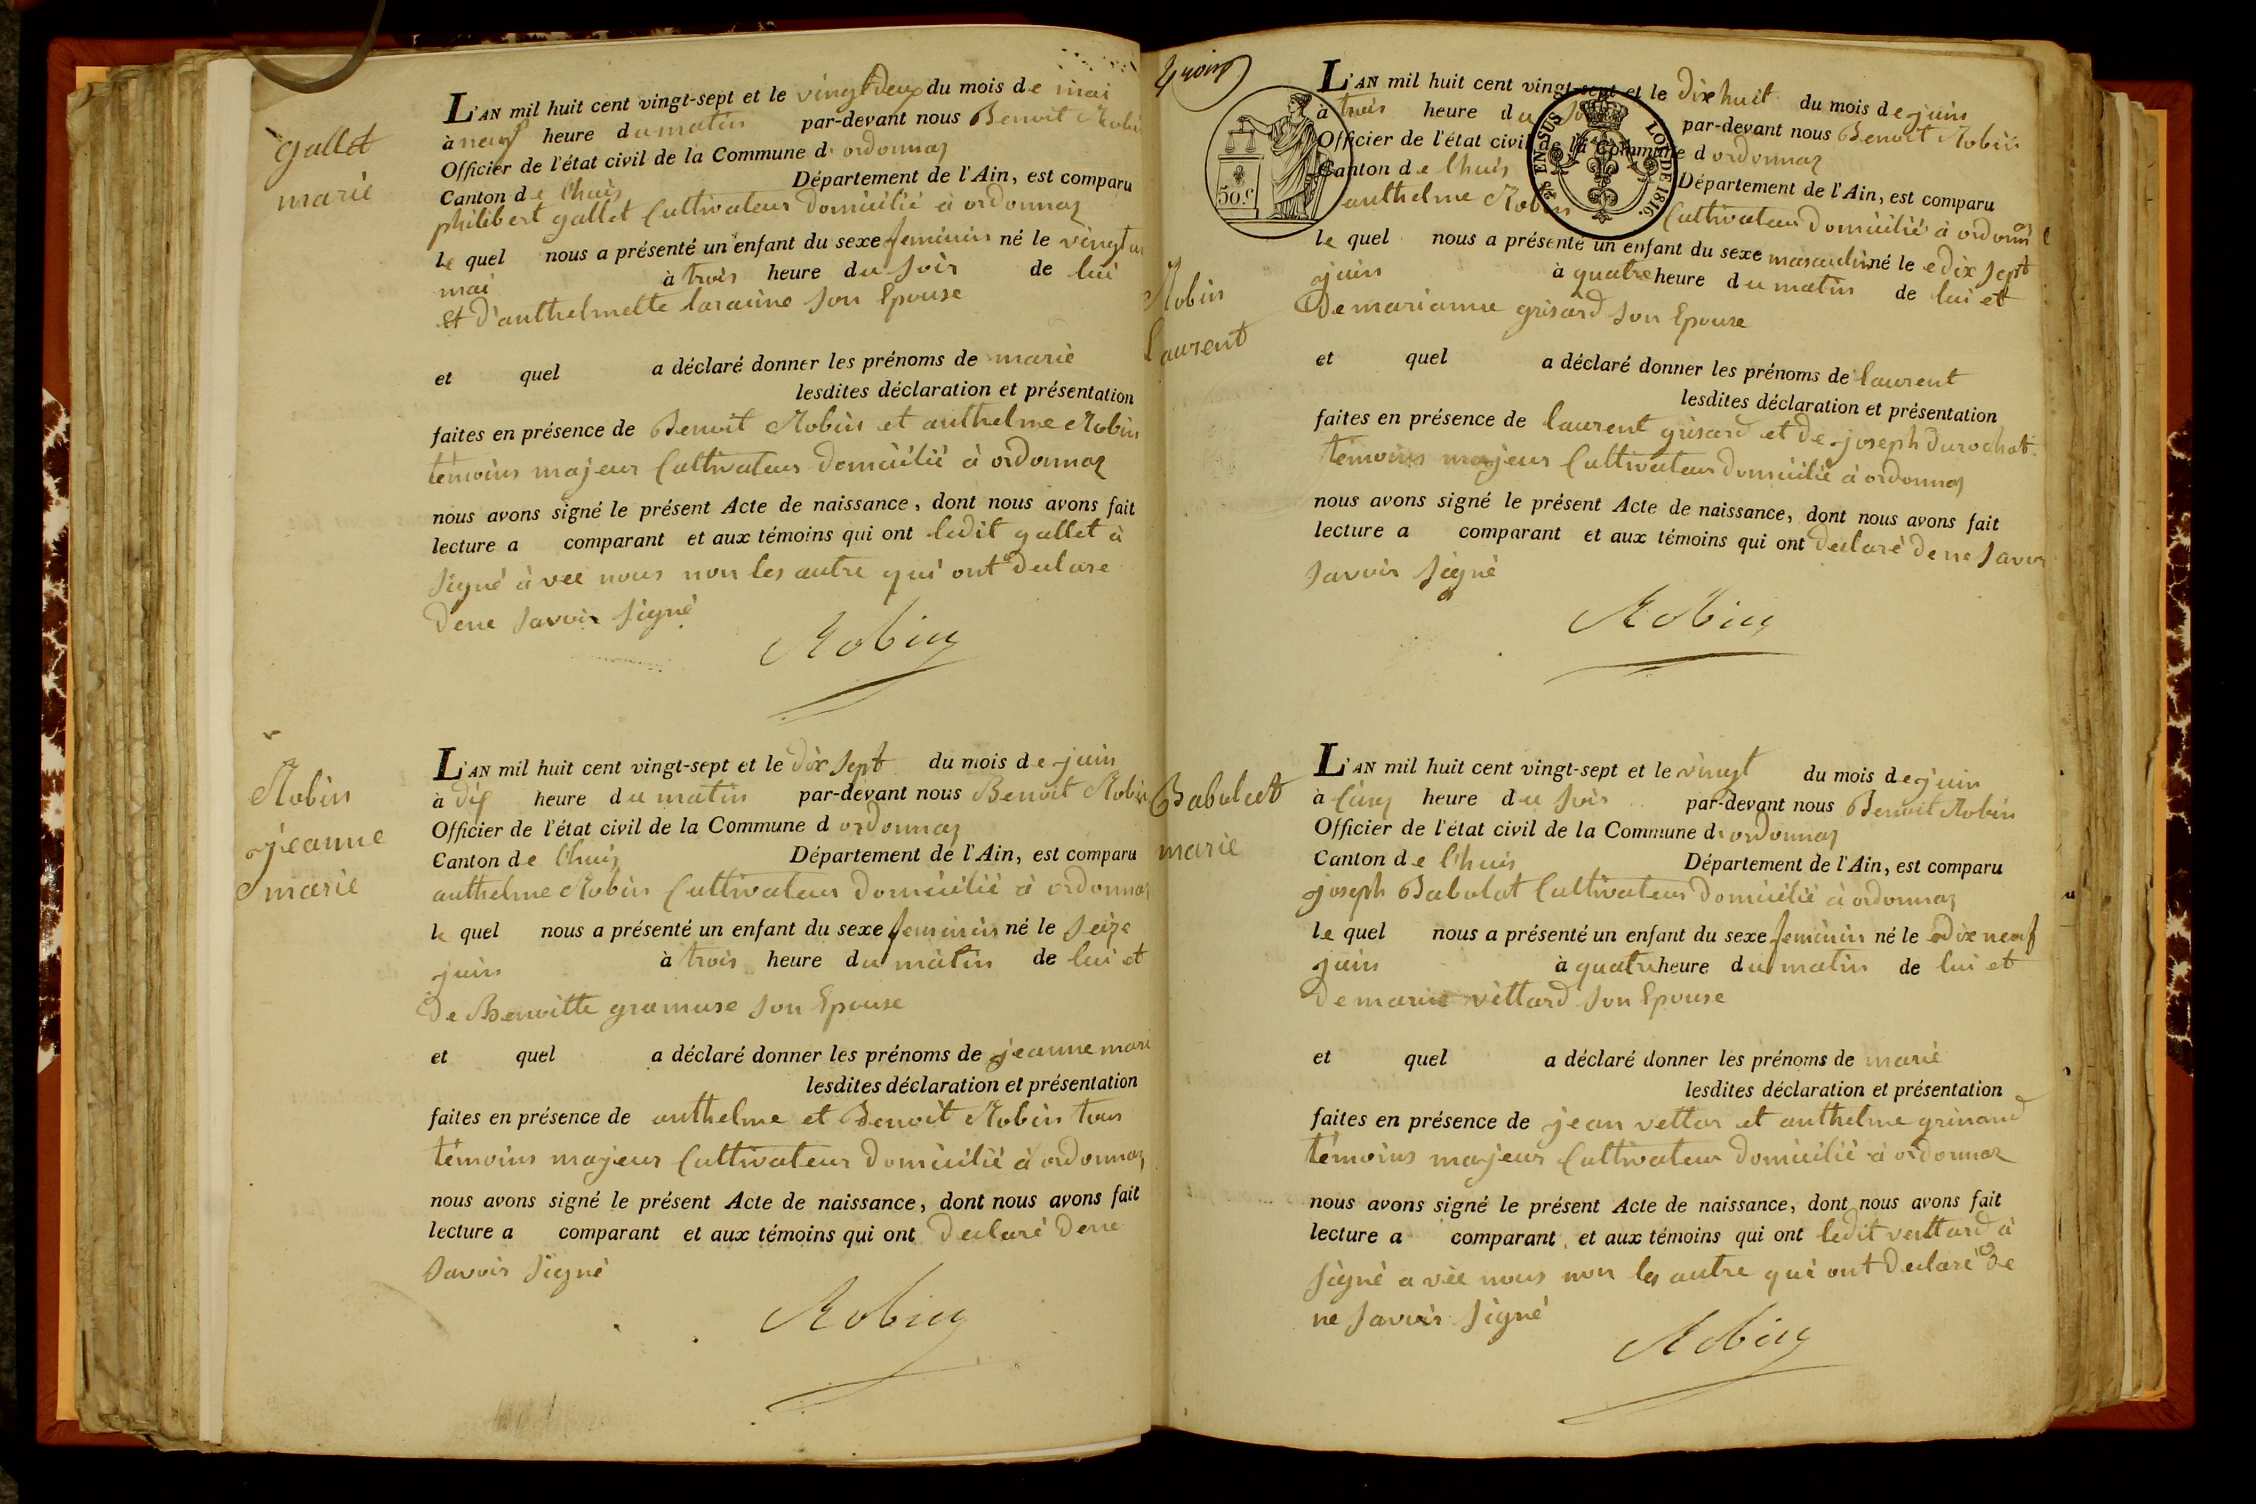 gallet
marie
L'AN mil huit cent vingt-sept et le vingt deux du mois de mai
à neuf heure du matin par-devant nous Benoit Robin
Officier de l'état civil de la Commune d ordonnaz
Canton de l'huis Département de l'Ain, est comparu
philibert gallet Cultivateur domicilié à ordonnaz
le quel nous a présenté un enfant du sexe feminin né le vingt un
mai à trois heure du soir de lui
et d'anthelmette laraime son Epouse
et quel a déclaré donner les prénoms de marie
lesdites déclaration et présentation
faites en présence de Benoit Robin et anthelme Robin
témoins majeur Cultivateur domicilié à ordonnaz
nous avons signé le présent Acte de naissance, dont nous avons fait
lecture a comparant et aux témoins qui ont ledit gallet à
signé à vec nous non les autre qui ont declare
dene savoir signé
Robin
Robin
jeanne
marie
L'AN mil huit cent vingt-sept et le dix sept du mois de juin
à dix heure du matin par-devant nous Benoit Robin
Officier de l'état civil de la Commune d ordonnaz
Canton de l'huis Département de l'Ain, est comparu
anthelme Robin Cultivateur domicilié à ordonnaz
le quel nous a présenté un enfant du sexe feminin né le seize
juin à trois heure du matin de lui et
de Benoitte gramuse son Epouse
et quel a déclaré donner les prénoms de jeanne marie
lesdites déclaration et présentation
faites en présence de anthelme et Benoit Robin tous
témoins majeur Cultivateur domicilié à ordonnaz
nous avons signé le présent Acte de naissance, dont nous avons fait
lecture a comparant et aux témoins qui ont declaré dene
savoir signé
Robin
50.c
25 EN SUS LOI DE 1816.
Robin
laurent
L'AN mil huit cent vingt-sept et le dix huit du mois de juin
à trois heure du soir par-devant nous Benoit Robin
Officier de l'état civil de la Commune d ordonnaz
Canton de l'huis Département de l'Ain, est comparu
anthelme Robin Cultivateur domicilié à ordonnaz
le quel nous a présenté un enfant du sexe masculin né le dix sept
juin à quatre heure du matin de lui et
de marianne grisard son Epouse
et quel a déclaré donner les prénoms de laurent
lesdites déclaration et présentation
faites en présence de laurent grisard et de joseph durochat
témoins majeur Cultivateur domicilié à ordonnaz
nous avons signé le présent Acte de naissance, dont nous avons fait
lecture a comparant et aux témoins qui ont declaré de ne savoir
savoir signé
Robin
Babolat
marie
L'AN mil huit cent vingt-sept et le vingt du mois de juin
à cinq heure du soir par-devant nous Benoit Robin
Officier de l'état civil de la Commune d ordonnaz
Canton de l'huis Département de l'Ain, est comparu
joseph Babolat Cultivateur domicilié à ordonnaz
le quel nous a présenté un enfant du sexe feminin né le dix neuf
juin à quatre heure du matin de lui et
de marie vettard son Epouse
et quel a déclaré donner les prénoms de marie
lesdites déclaration et présentation
faites en présence de jean vettar et anthelme grinand
témoins majeur Cultivateur domicilié à ordonnaz
nous avons signé le présent Acte de naissance, dont nous avons fait
lecture a comparant et aux témoins qui ont ledit vettard à
signé a vec nous non les autre qui ont declaré de
ne savoir signé
Robin